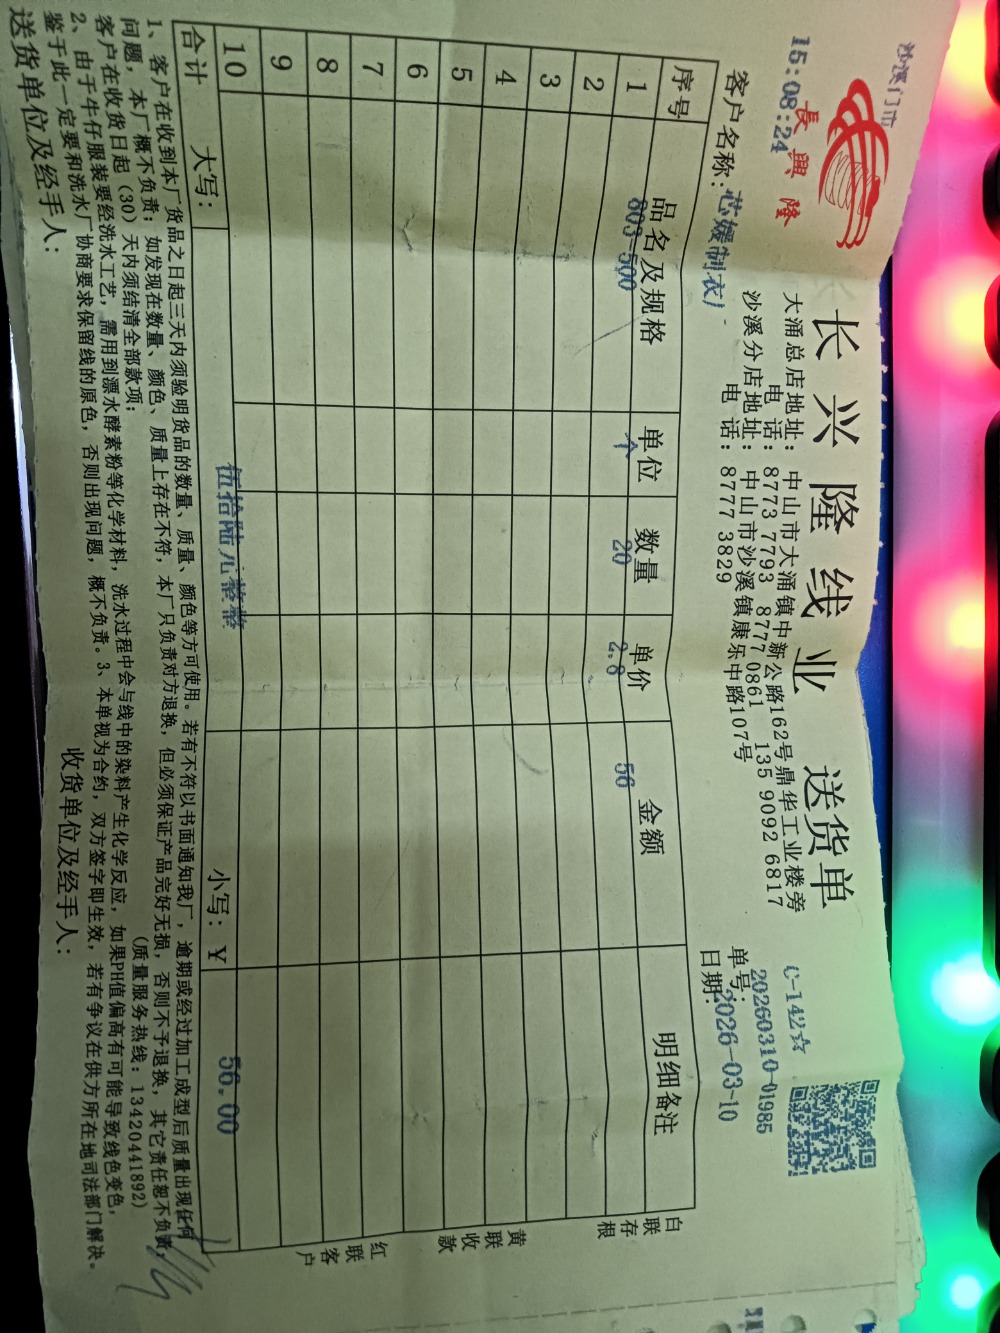 沙溪门市
15:08:24
長興隆
长兴隆线业 送货单
C-142☆
大涌总店地址：中山市大涌镇中新公路162号鼎华工业楼旁
电 话：8773 7793 8777 0861 135 9092 6817
沙溪分店地址：中山市沙溪镇康乐中路107号
电 话：8777 3829
单号：20260310-01985
客户名称：芯媛制衣厂
日期：2026-03-10
序号 品名及规格 单位 数量 单价 金额 明细备注
1 803-500 个 20 2.8 56
2
3
4
5
6
7
8
9
10
合计 大写： 伍拾陆元整整 小写：￥ 56.00
白联存根
黄联收款
红联客户
1、客户在收到本厂货品之日起三天内须验明货品的数量、质量、颜色等方可使用。若有不符以书面通知我厂，逾期或经过加工成型后质量出现任何
问题，本厂概不负责；如发现在数量、颜色、质量上存在不符，本厂只负责对方退换，但必须保证产品完好无损，否则不予退换，其它责任恕不负责；
客户在收货日起（30）天内须结清全部款项； （质量服务热线：13420441892）
2、由于牛仔服装要经洗水工艺，需用到漂水酵素粉等化学材料，洗水过程中会与线中的染料产生化学反应，如果PH值偏高有可能导致线色变色，
鉴于此一定要和洗水厂协商要求保留线的原色，否则出现问题，概不负责。3、本单视为合约，双方签字即生效，若有争议在供方所在地司法部门解决。
送货单位及经手人： 收货单位及经手人：